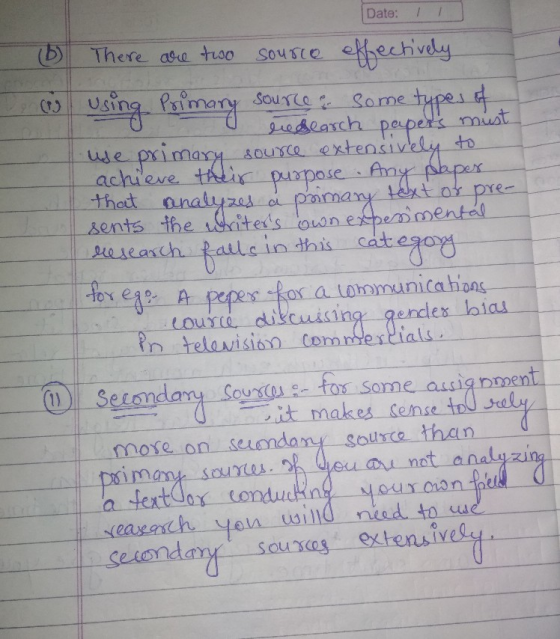 Date: / /
(b) There are two source effectively
(i) Using Primary source :- Some types of
research papers must
use primary source extensively to
achieve their purpose. Any paper
that analyzes a primary text or pre-
sents the writer's own experimental
research falls in this category
for eg:- A peper for a communications
cource discuising gender bias
in television commercials.
(ii) Secondary Sources :- for some assignment
, it makes sense to rely
more on secondary source than
primary sources. If you are not analyzing
a text or conducting your own field
reasearch you will need to use
secondary sources extensively.